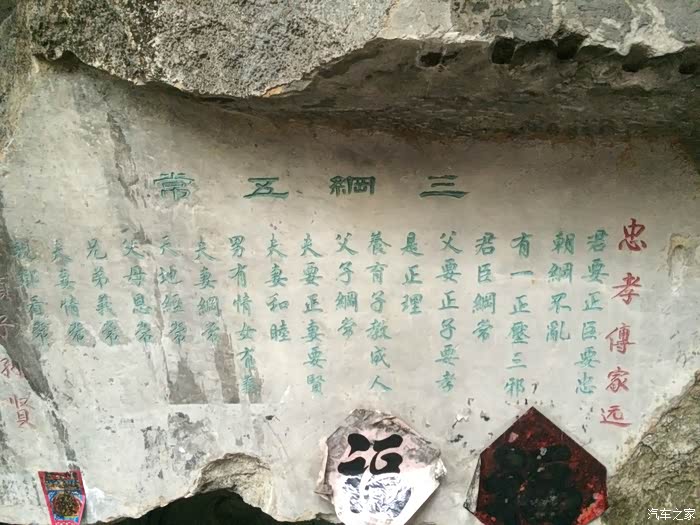 三綱五常
忠孝傳家远
君要正臣要忠
朝綱不亂
有一正壓三邪
君臣綱常
父要正子要孝
是正理
養育子教成人
父子綱常
夫要正妻要賢
夫妻和睦
男有情女有義
夫妻綱常
天地經常
父母恩常
兄弟義常
夫妻情常
常
子孙贤
汽车之家